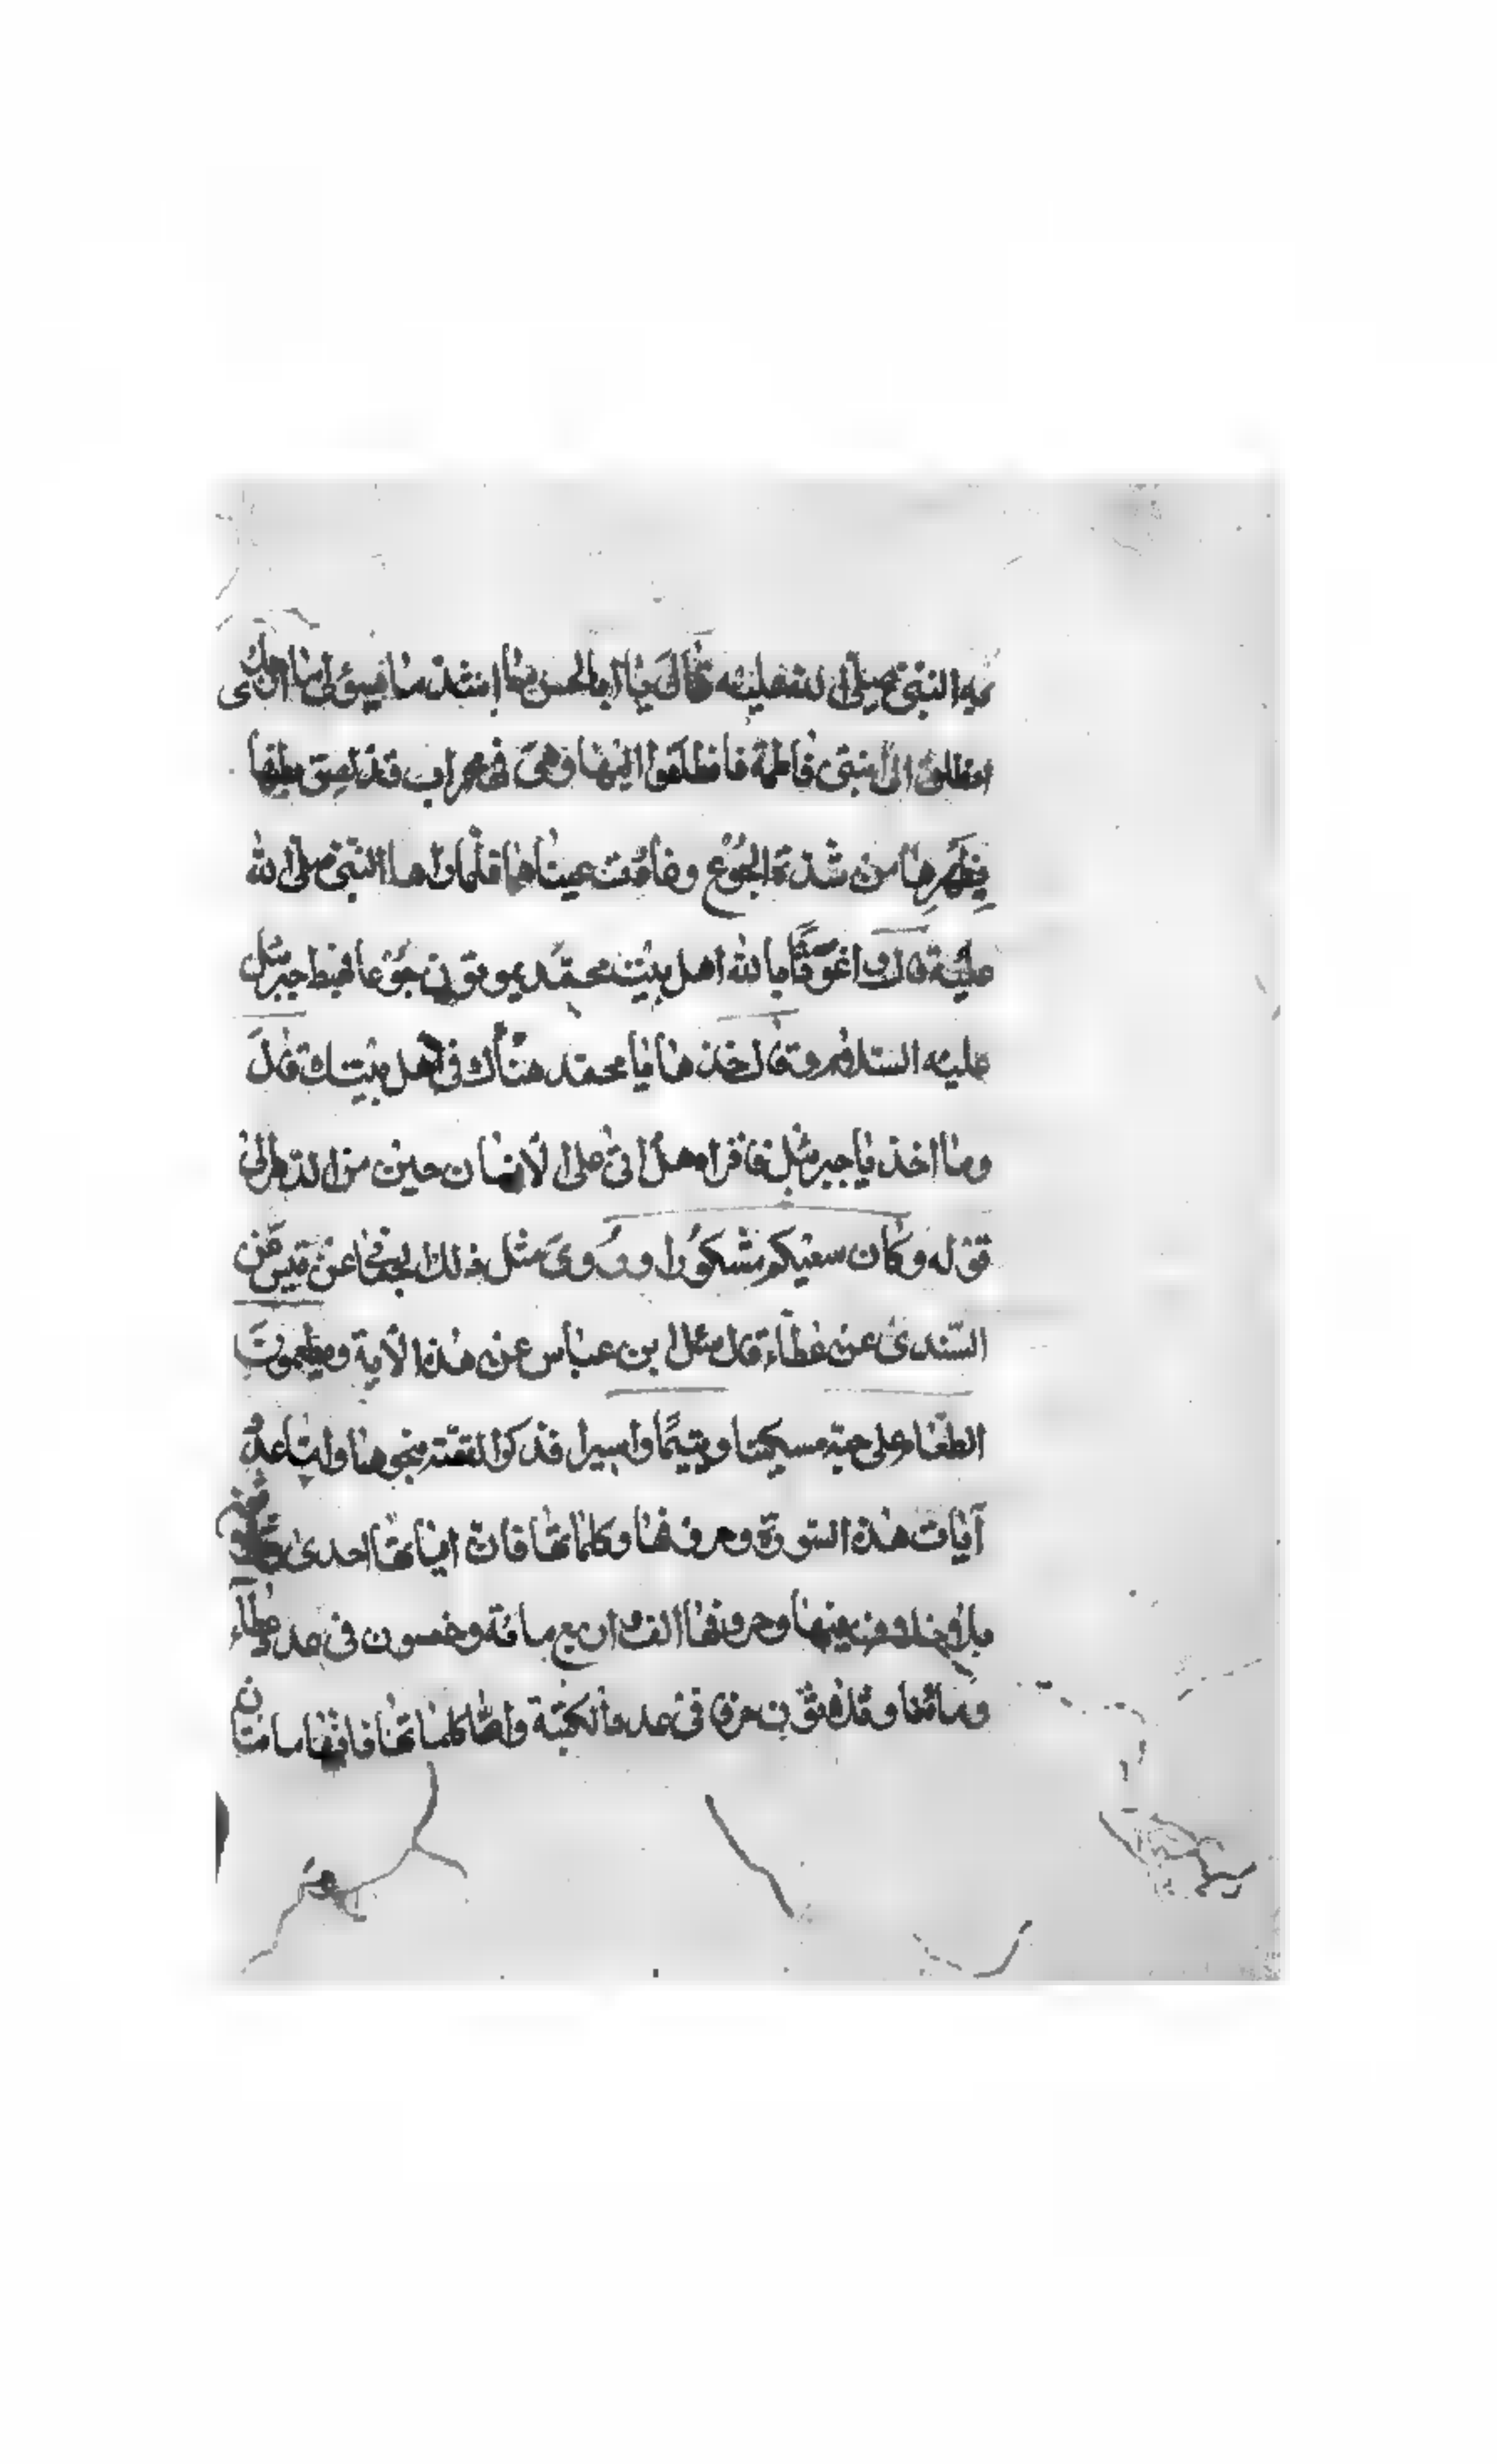 به النبي صلى الله عليه قال يا ابا الحسن ما اشد ما يسوني ما ارى بكم
انطلق الى ابنتى فاطمة فانطلقوا اليها وهى فى محراب قد لصق بطنها
بظهرها من شدة الجوع وغارت عيناها فلما راها النبى صلى الله
عليه قال واغوثا بالله اهل بيت محمد يموتون جوعا فهبط جبرئيل
عليه السلام وقال خذها يا محمد هناك فى اهل بيتك قال
وما اخذ يا جبرئيل فاقراه هل اتى على الانسان حين من الدهر الى
قوله وكان سعيكم مشكورا وروى مثل ذلك عن قيس عن
السندى عن عطاء قال سئل ابن عباس عن هذه الآية ويطعمون
الطعام على حبه مسكينا ويتيما واسيرا فذكر القصة بنحوها واما عدد
آيات هذه السورة وحروفها وكلماتها فان اياتها احدى وثلثون
بلا خلاف فيها وحروفها الف واربع مائة وخمسون فى عدد عطاء
وثلثون حرفا فى عدد الكتبة واما كلماتها فانها مائتان